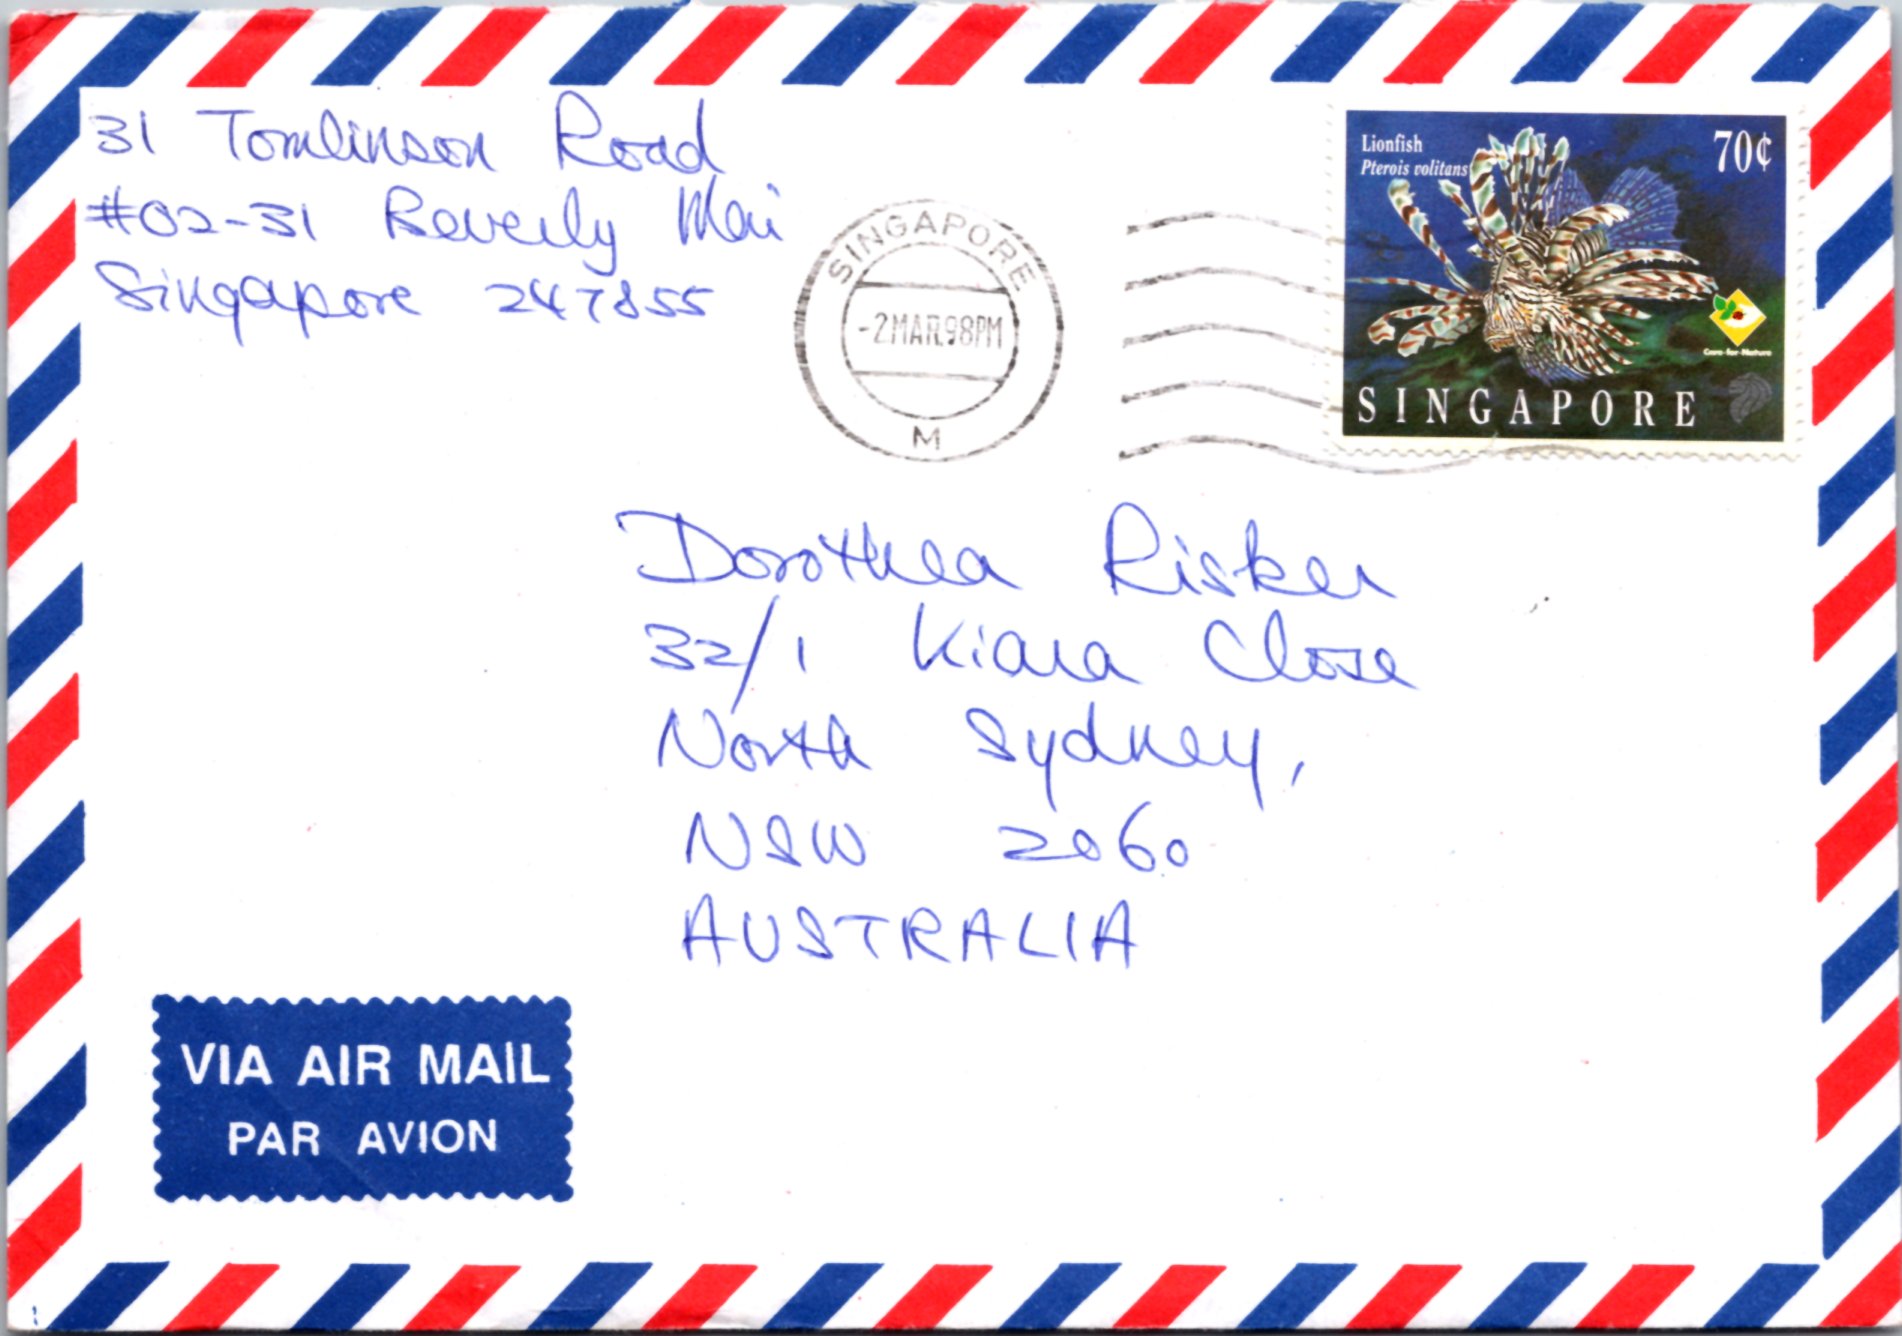 31 Tomlinson Road
#02-31 Beverly Mai
Singapore 247855
SINGAPORE
-2MAR98PM
M
Lionfish
Pterois volitans
70¢
Care-for-Nature
SINGAPORE
Dorothea Risker
32/1 Kiara Close
North Sydney,
NSW 2060
AUSTRALIA
VIA AIR MAIL
PAR AVION